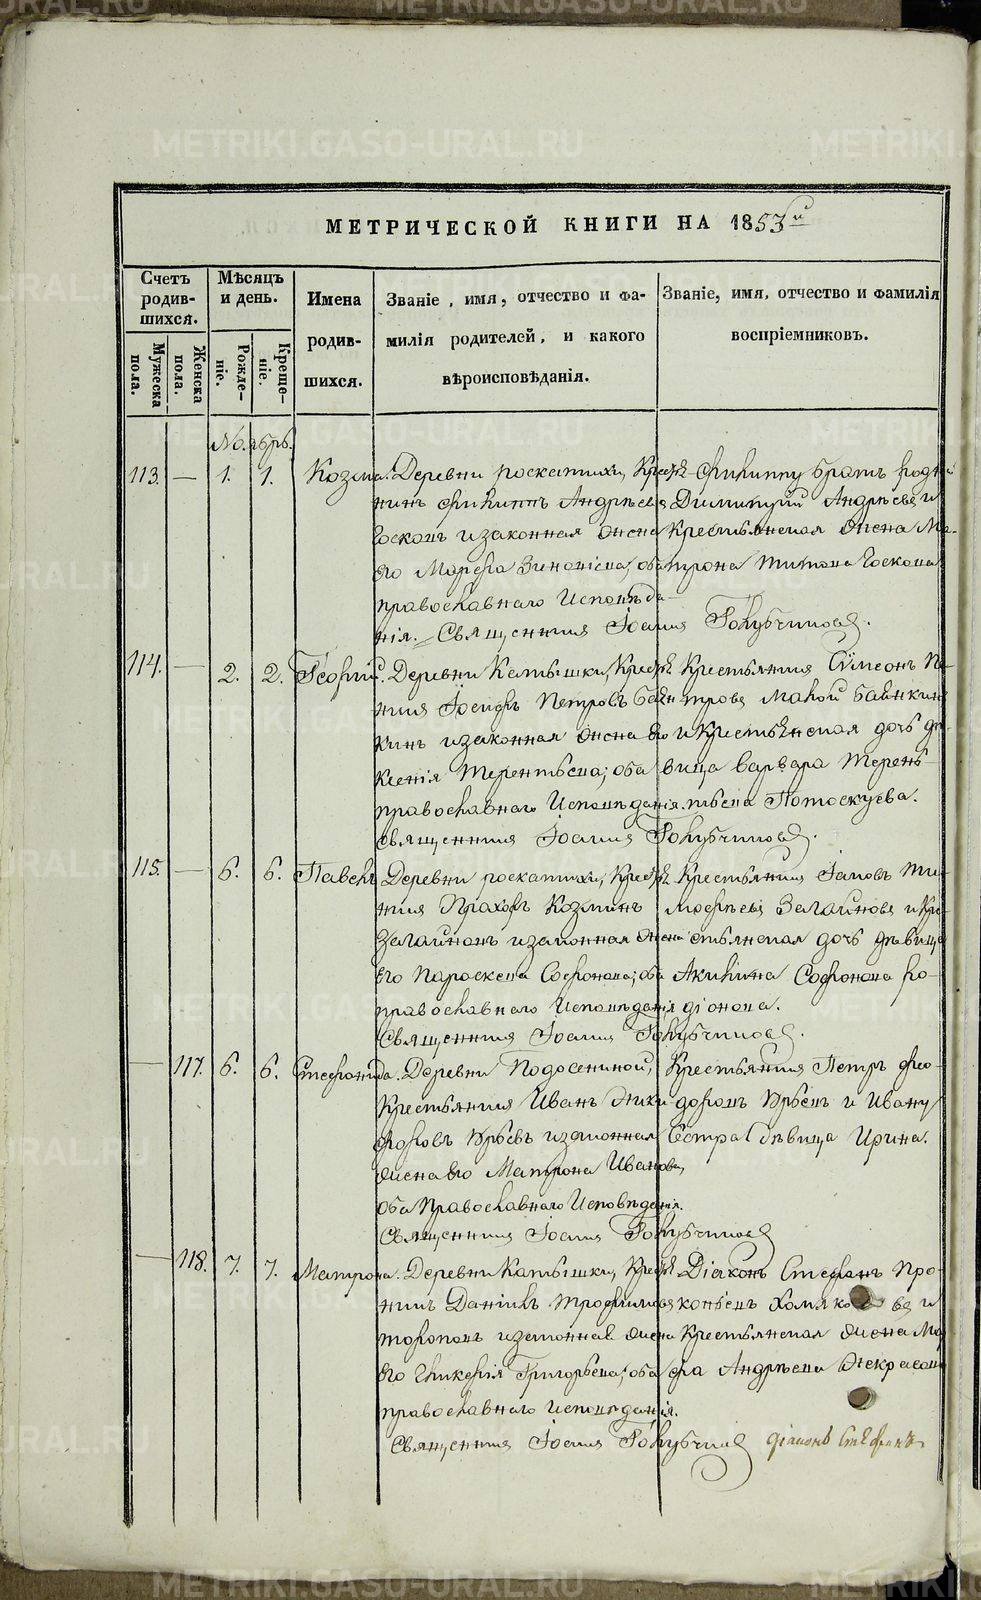 METRIKI.GASO-URAL.RU
МЕТРИЧЕСКОЙ КНИГИ НА 1853й
Счетъ родив- шихся.
Мужеска пола.
Женска пола.
Мѣсяцъ и день.
Рожде- ніе.
Креще- ніе.
Имена родив- шихся.
Званіе, имя, отчество и фа-
милія родителей, и какого
вѣроисповѣданія.
Званіе, имя, отчество и фамилія
воспріемниковъ.
Ноябрь.
113. — 1. 1. Козма.
Деревни роскатихи, Крестья
нинъ Филиппъ Андрѣевъ
и законная жена
его Марфа Зиновіева; оба
православнаго Исповѣда-
нія. Священникъ Іоаннъ Голубчиковъ.
Филиппу братъ родн
Димитрій Андрѣевъ и
Крестьянская жена Ма-
трона Титова
114. — 2. 2. Георгій.
Деревни Катышки, Крестья
нинъ Іосифъ Петровъ Байн
кинъ и законная жена его
Ксенія Терентьева; оба
православнаго Исповѣданія.
Священникъ Іоаннъ Голубчиковъ.
Крестьянинъ Сѵмеонъ Пе-
тровъ малой Байнкин
и Крестьянская дочь дѣ-
вица Варвара Терень-
тьева Потоскуева.
115. — 6. 6. Павелъ
Деревни роскатихи, Крестья
нинъ Прахоръ Козминъ
Загайновъ и законная жена
его Параскева Софонова; оба
православнаго Исповѣданія
Священникъ Іоаннъ Голубчиковъ.
Крестьянинъ Іаковъ Ти-
мофѣевъ Загайновъ и Кре-
стьянская дочь дѣвица
Акилина Софонова Ро-
діонова.
— 117. 6. 6. Стефанида.
Деревни Подосениной,
Крестьянинъ Иванъ Ники
форовъ Юрьевъ и законная
жена его Матрона Иванова,
оба Православнаго Исповѣданія.
Священникъ Іоаннъ Голубчиковъ
Крестьянинъ Петръ Фео-
доровъ Юрьевъ и Ивану
Сестра дѣвица Ирина.
— 118. 7. 7. Матрона.
Деревни Катышки, Крестья
нинъ Даніилъ Трофимовъ
Тороповъ и законная жена
его Гликерія Григорьева; оба
православнаго Исповѣданія.
Священникъ Іоаннъ Голубчиков
Діаконъ Стефанъ Про-
копьевъ Хомяковъ и
Крестьянская жена Мар
фа Андрѣева Некрасова
діаконъ Стефанъ